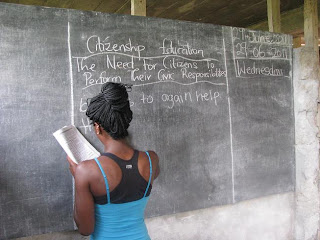 Citizenship Education
The Need for Citizens To
Perform Their Civic Responsibilities
to again help
June
29-06-2011
Wednesday